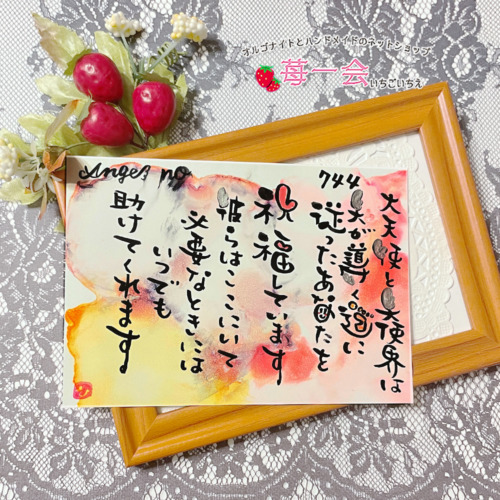 オルゴナイトとハンドメイドのネットショップ
苺一会
いちごいちえ
Angel no
744
大天使と天使界は
天が導く道に
従ったあなたを
祝福しています
彼らはここにいて
必要なときには
いつでも
助けてくれます